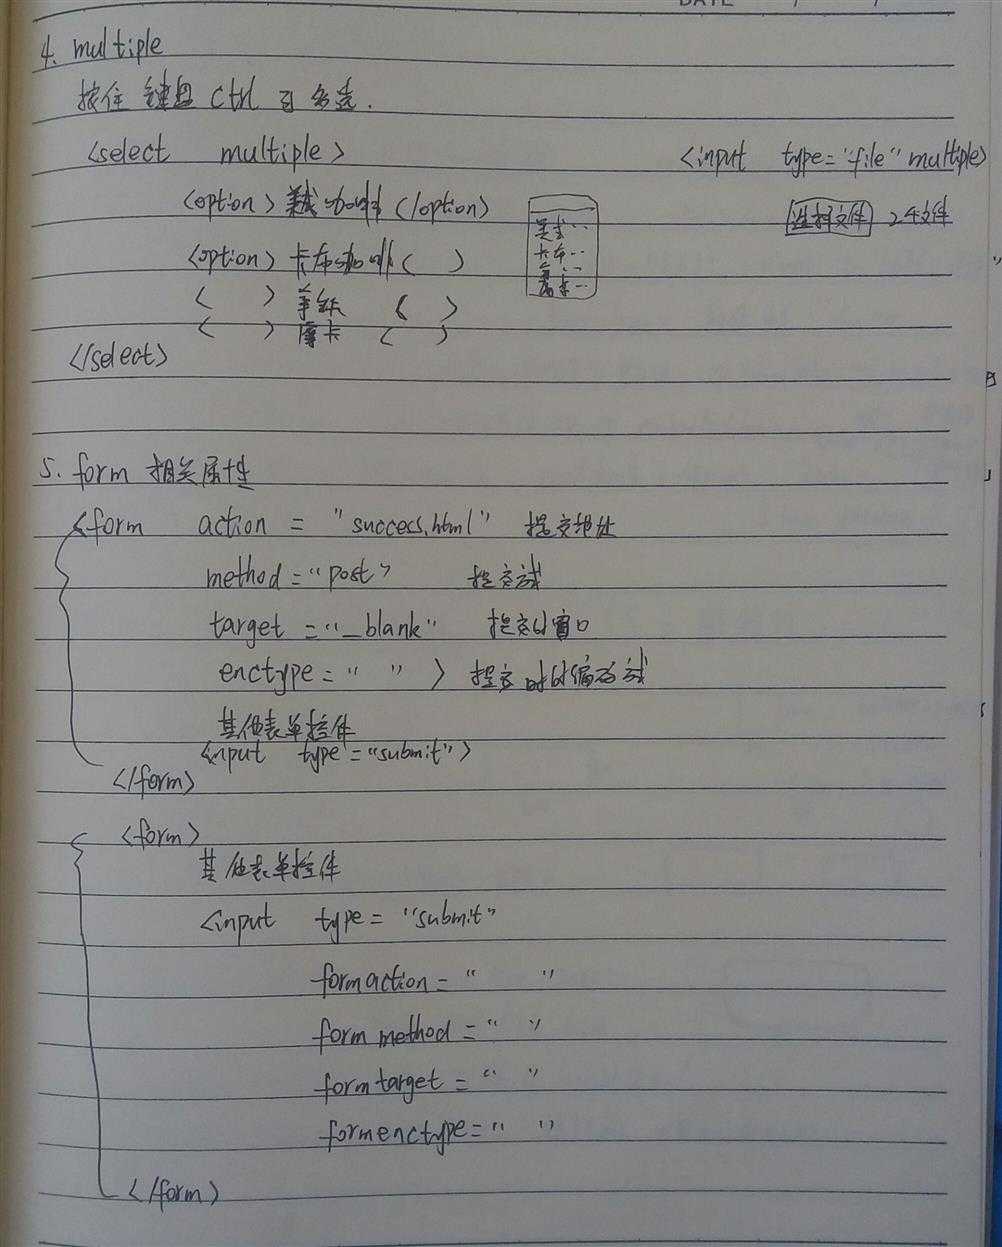 DATE / /
4. multiple
按住 键盘 ctrl 可多选.
<select multiple>
<option> 美式咖啡 </option>
<option> 卡布咖啡 < >
< > 拿铁 < >
< > 摩卡 < >
</select>
美式…
卡布…
拿…
摩卡…
<input type="file" multiple>
选择文件 2个文件
5. form 相关属性
<form action = "success.html" 提交地址
method = "post" 提交方式
target = "_blank" 提交的窗口
enctype = " " > 提交时的编码方式
其他表单控件
<input type = "submit">
</form>
<form>
其他表单控件
<input type = "submit"
formaction = " "
formmethod = " "
formtarget = " "
formenctype = " "
</form>